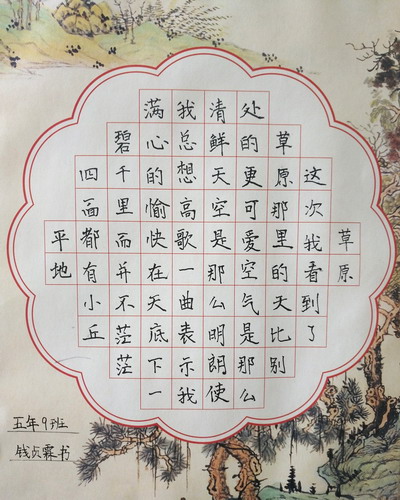 草原
这次我看到了
草原那里的天比别
处的更可爱空气是那么
清鲜天空是那么明朗使
我总想高歌一曲表示我
满心的愉快在天底下一
碧千里而并不茫茫
四面都有小丘
平地
五年9班
钱霖书